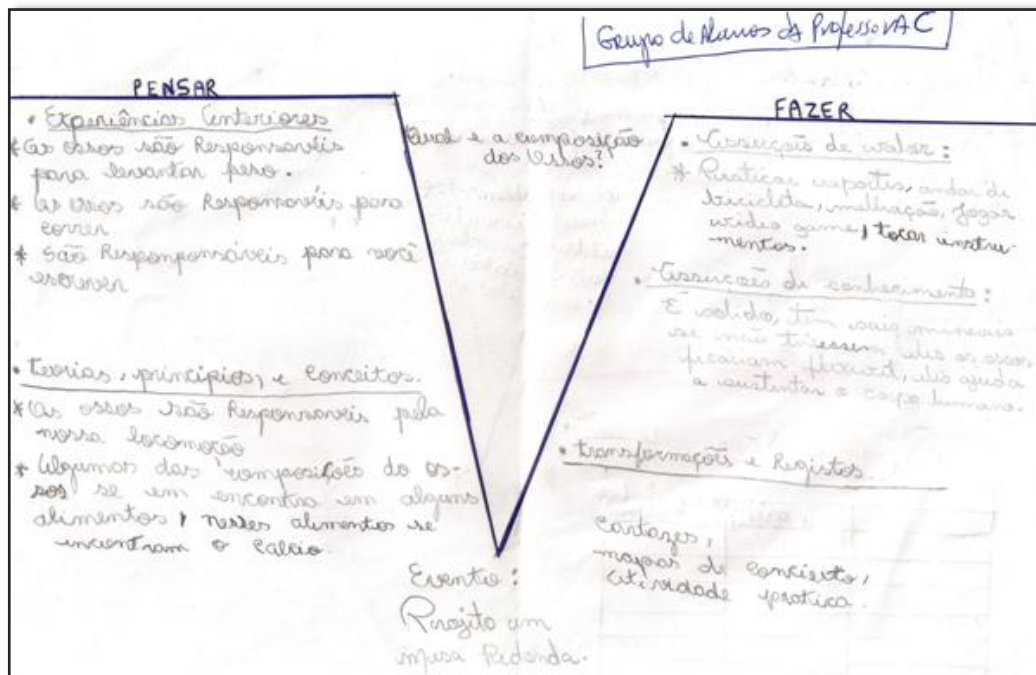 Grupo de Alunos dA ProfessorA C
PENSAR
• Experiências Anteriores
* Os ossos são Responsavéis
para levantar peso.
* Os ossos são Responsavéis para
correr
* São Responponsáveis para você
escrever
• Teorias, princípios, e Conceitos.
* Os ossos são Responsaveis pela
nossa locomoção
* Algumas das composições do os-
sos se em encontra em alguns
alimentos, nestes alimentos se
encontram o Calcio.
Qual e a composição
dos Ossos?
Evento:
Projito um
mesa Redonda.
FAZER
• Asserções de valor:
* Praticar esportes, andar de
bicicleta, malhação, jogar
video game, tocar instru-
mentos.
• Asserções de conhecimento:
É solido, tem sais minerais
se não tivessem eles os ossos
ficavam flexivel, eles ajuda
a sustentar o corpo humano.
• transformações e Registos
Cartazes,
mapas de Concierto,
atividade pratica.